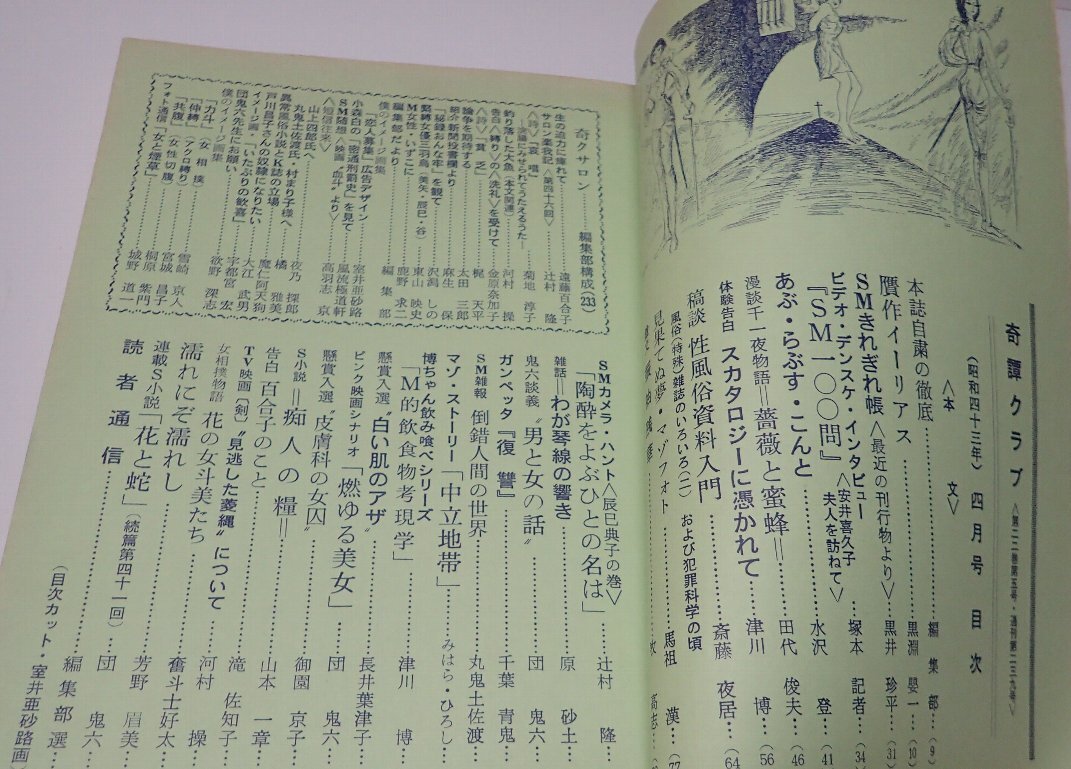 奇譚クラブ
(昭和四十三年) 四月号 目次
<第二二巻第五号・通刊第二三九号>
<本 文>
本誌自粛の徹底…編集部…(9)
贋作イーリアス…黒淵 嬰一…(10)
SMきれぎれ帳<最近の刊行物より>…黒井 珍平…(31)
ビデオ・デンスケ・インタビュー
『SM一〇〇問』<安井喜久子夫人を訪ねて>…塚本 記者…(34)
あぶ・らぶす・こんと…水沢 登…(41)
漫談千一夜物語=薔薇と蜜蜂=…田代 俊夫…(46)
体験告白 スカタロジーに憑かれて…津川 博…(56)
稿談 性風俗資料入門…斎藤 夜居…(64)
風俗(特殊)雑誌のいろいろ(二) および犯罪科学の頃
見果てぬ夢・マゾフォト…馬祖 漢…(77
高志
SMカメラ・ハント<辰巳典子の巻>
「陶酔をよぶひとの名は」…辻村 隆…
雑話=わが琴線の響き…原 砂土…
鬼六談義“男と女の話”…団 鬼六…
ガンベッタ『復讐』…千葉 青鬼…
SM雑報 倒錯人間の世界…丸鬼土佐渡…
マゾ・ストーリー「中立地帯」…みはら・ひろし…
博ちゃん飲み喰べシリーズ
「M的飲食物考現学」…津川 博…
懸賞入選“白い肌のアザ”…長井葉津子…
ピンク映画シナリオ「燃ゆる美女」…団 鬼六…
懸賞入選“皮膚科の女囚”…御園 京子…
S小説=痴人の糧=…山本 一章…
告白 百合子のこと…滝 佐知子…
TV映画〔剣〕“見逃した菱縄”について…河村 操…
女相撲物語 花の女斗美たち…奮斗士好太…
濡れにぞ濡れし…芳野 眉美…
連載S小説「花と蛇」(続篇第四十一回)…団 鬼六…
読者通信…編集部選…
(目次カット・室井亜砂路画)
奇クサロン…編集部構成(233)
生の迫力に痺れて…遠藤百合子
サロン楽我記<第四十六回>…辻村 隆
<告>「哀唱」…菊地 淳子
釣り落した大魚(本文関連)…河村 操
告白<縛り>の<洗礼>を受けて…金原奈加子
<詩>「貧乏」…梶 天平
論争を期待する…太田 三郎
紹介新聞投書欄より…麻生 保
「秘録おんな牢」を観て…沢潟 しの
緊縛女優三羽烏(美矢・辰巳・谷)…東山 映史
M女性・いずこに…鹿野 求二
編集部だより…編集部
僕のイメージ画集
「恋人募集」広告デザイン…室井亜砂路
小森白の「密通刑罰史」を見て…風流極道軒
SM随想<映画・血汁より>…高羽志 京
<短信往来>
山上四郎氏へ…夜乃 探郎
丸鬼土佐渡氏・村まり子様へ…橘 雅美
異常風俗小説とK誌の立場…魔仁阿天狗
戸川昌子さんの奴隷になりたい…大江 武男
イメージ画・「いたぶりの歓喜」…宇都宮 宏
団鬼六先生にお願い…欲野 深志
僕のイメージ画集
「力斗」(女相撲)…雪崎 京人
「仲縛」(アクロ縛り)…宮城 昌子
「共腹」(女性切腹)…桐原 紫門
フォト通信「女と煙草」…城野 道一